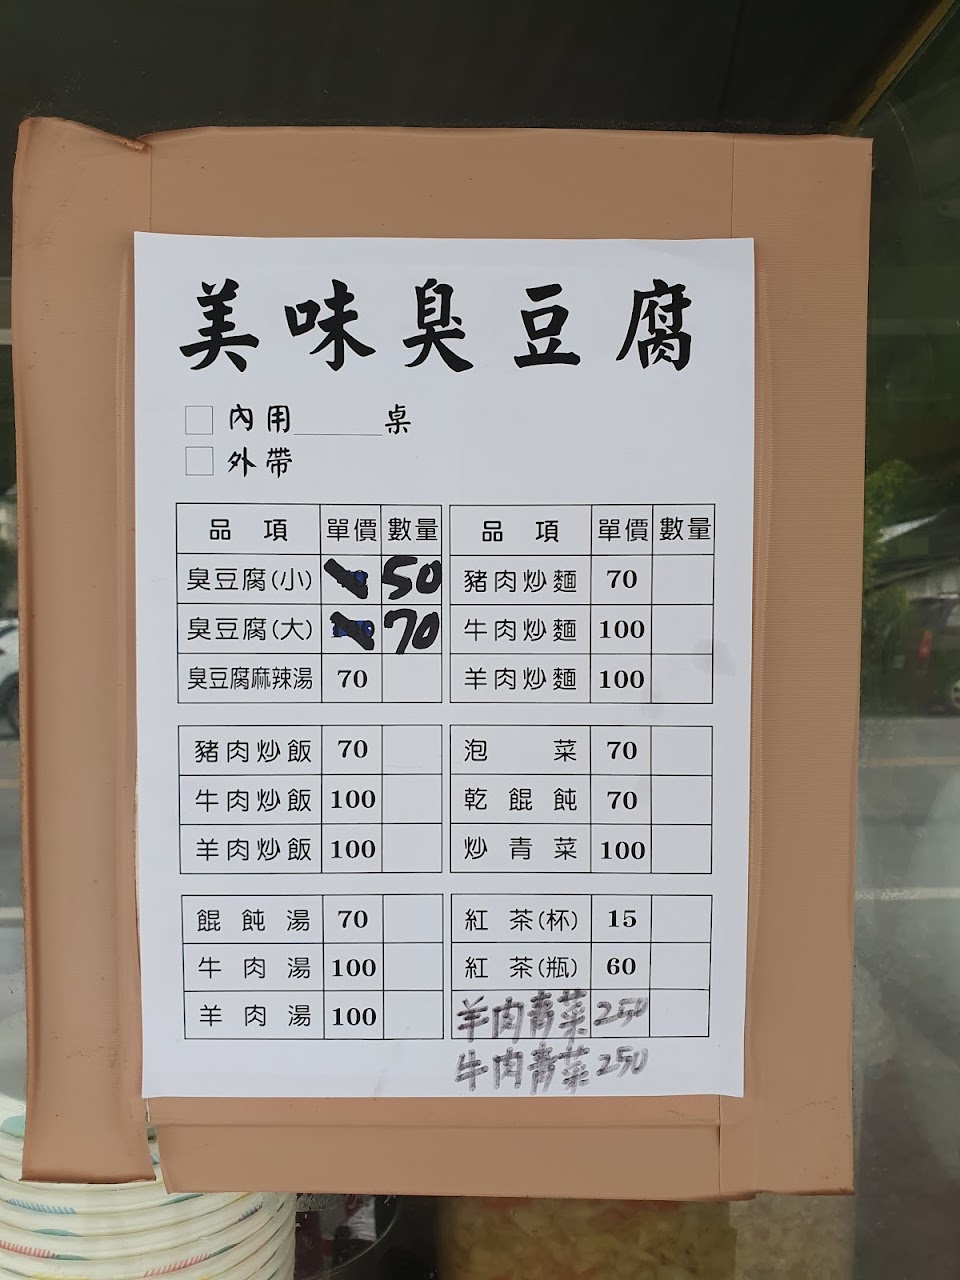 美味臭豆腐
內用______桌
外帶
品項 單價 數量
臭豆腐(小) 50
臭豆腐(大) 70
臭豆腐麻辣湯 70
豬肉炒飯 70
牛肉炒飯 100
羊肉炒飯 100
餛飩湯 70
牛肉湯 100
羊肉湯 100
品項 單價 數量
豬肉炒麵 70
牛肉炒麵 100
羊肉炒麵 100
泡菜 70
乾餛飩 70
炒青菜 100
紅茶(杯) 15
紅茶(瓶) 60
羊肉青菜250
牛肉青菜250